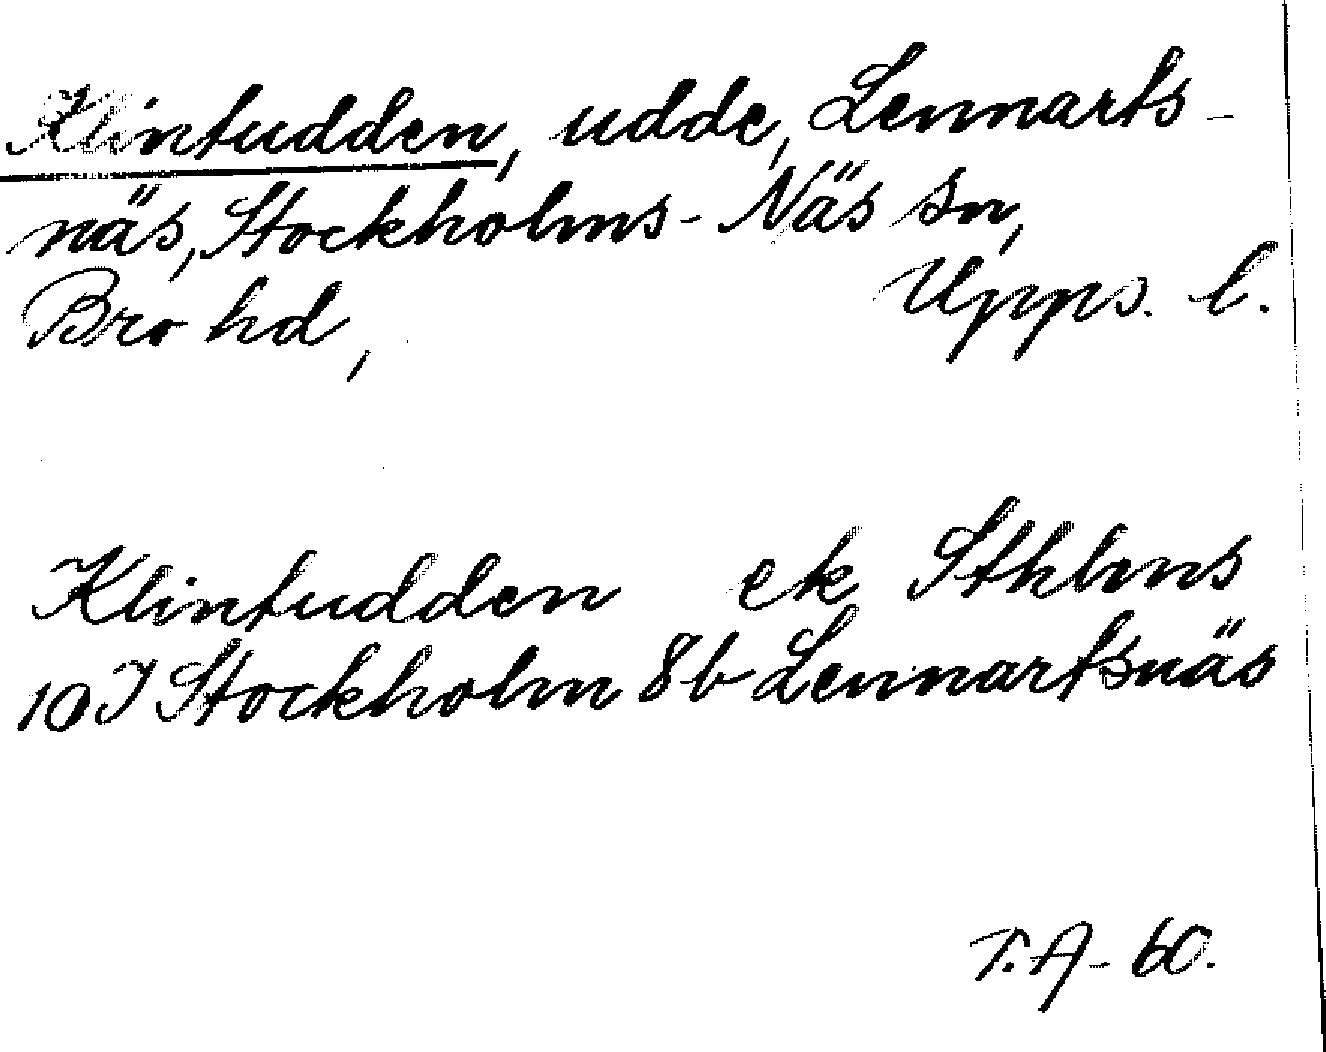 Klintudden, udde, Lennarts-
näs, Stockholms-Näs sn,
Bro hd, Upps. l.
Klintudden ek Sthlms
10I Stockholm 8b Lennartsnäs
T.A-60.